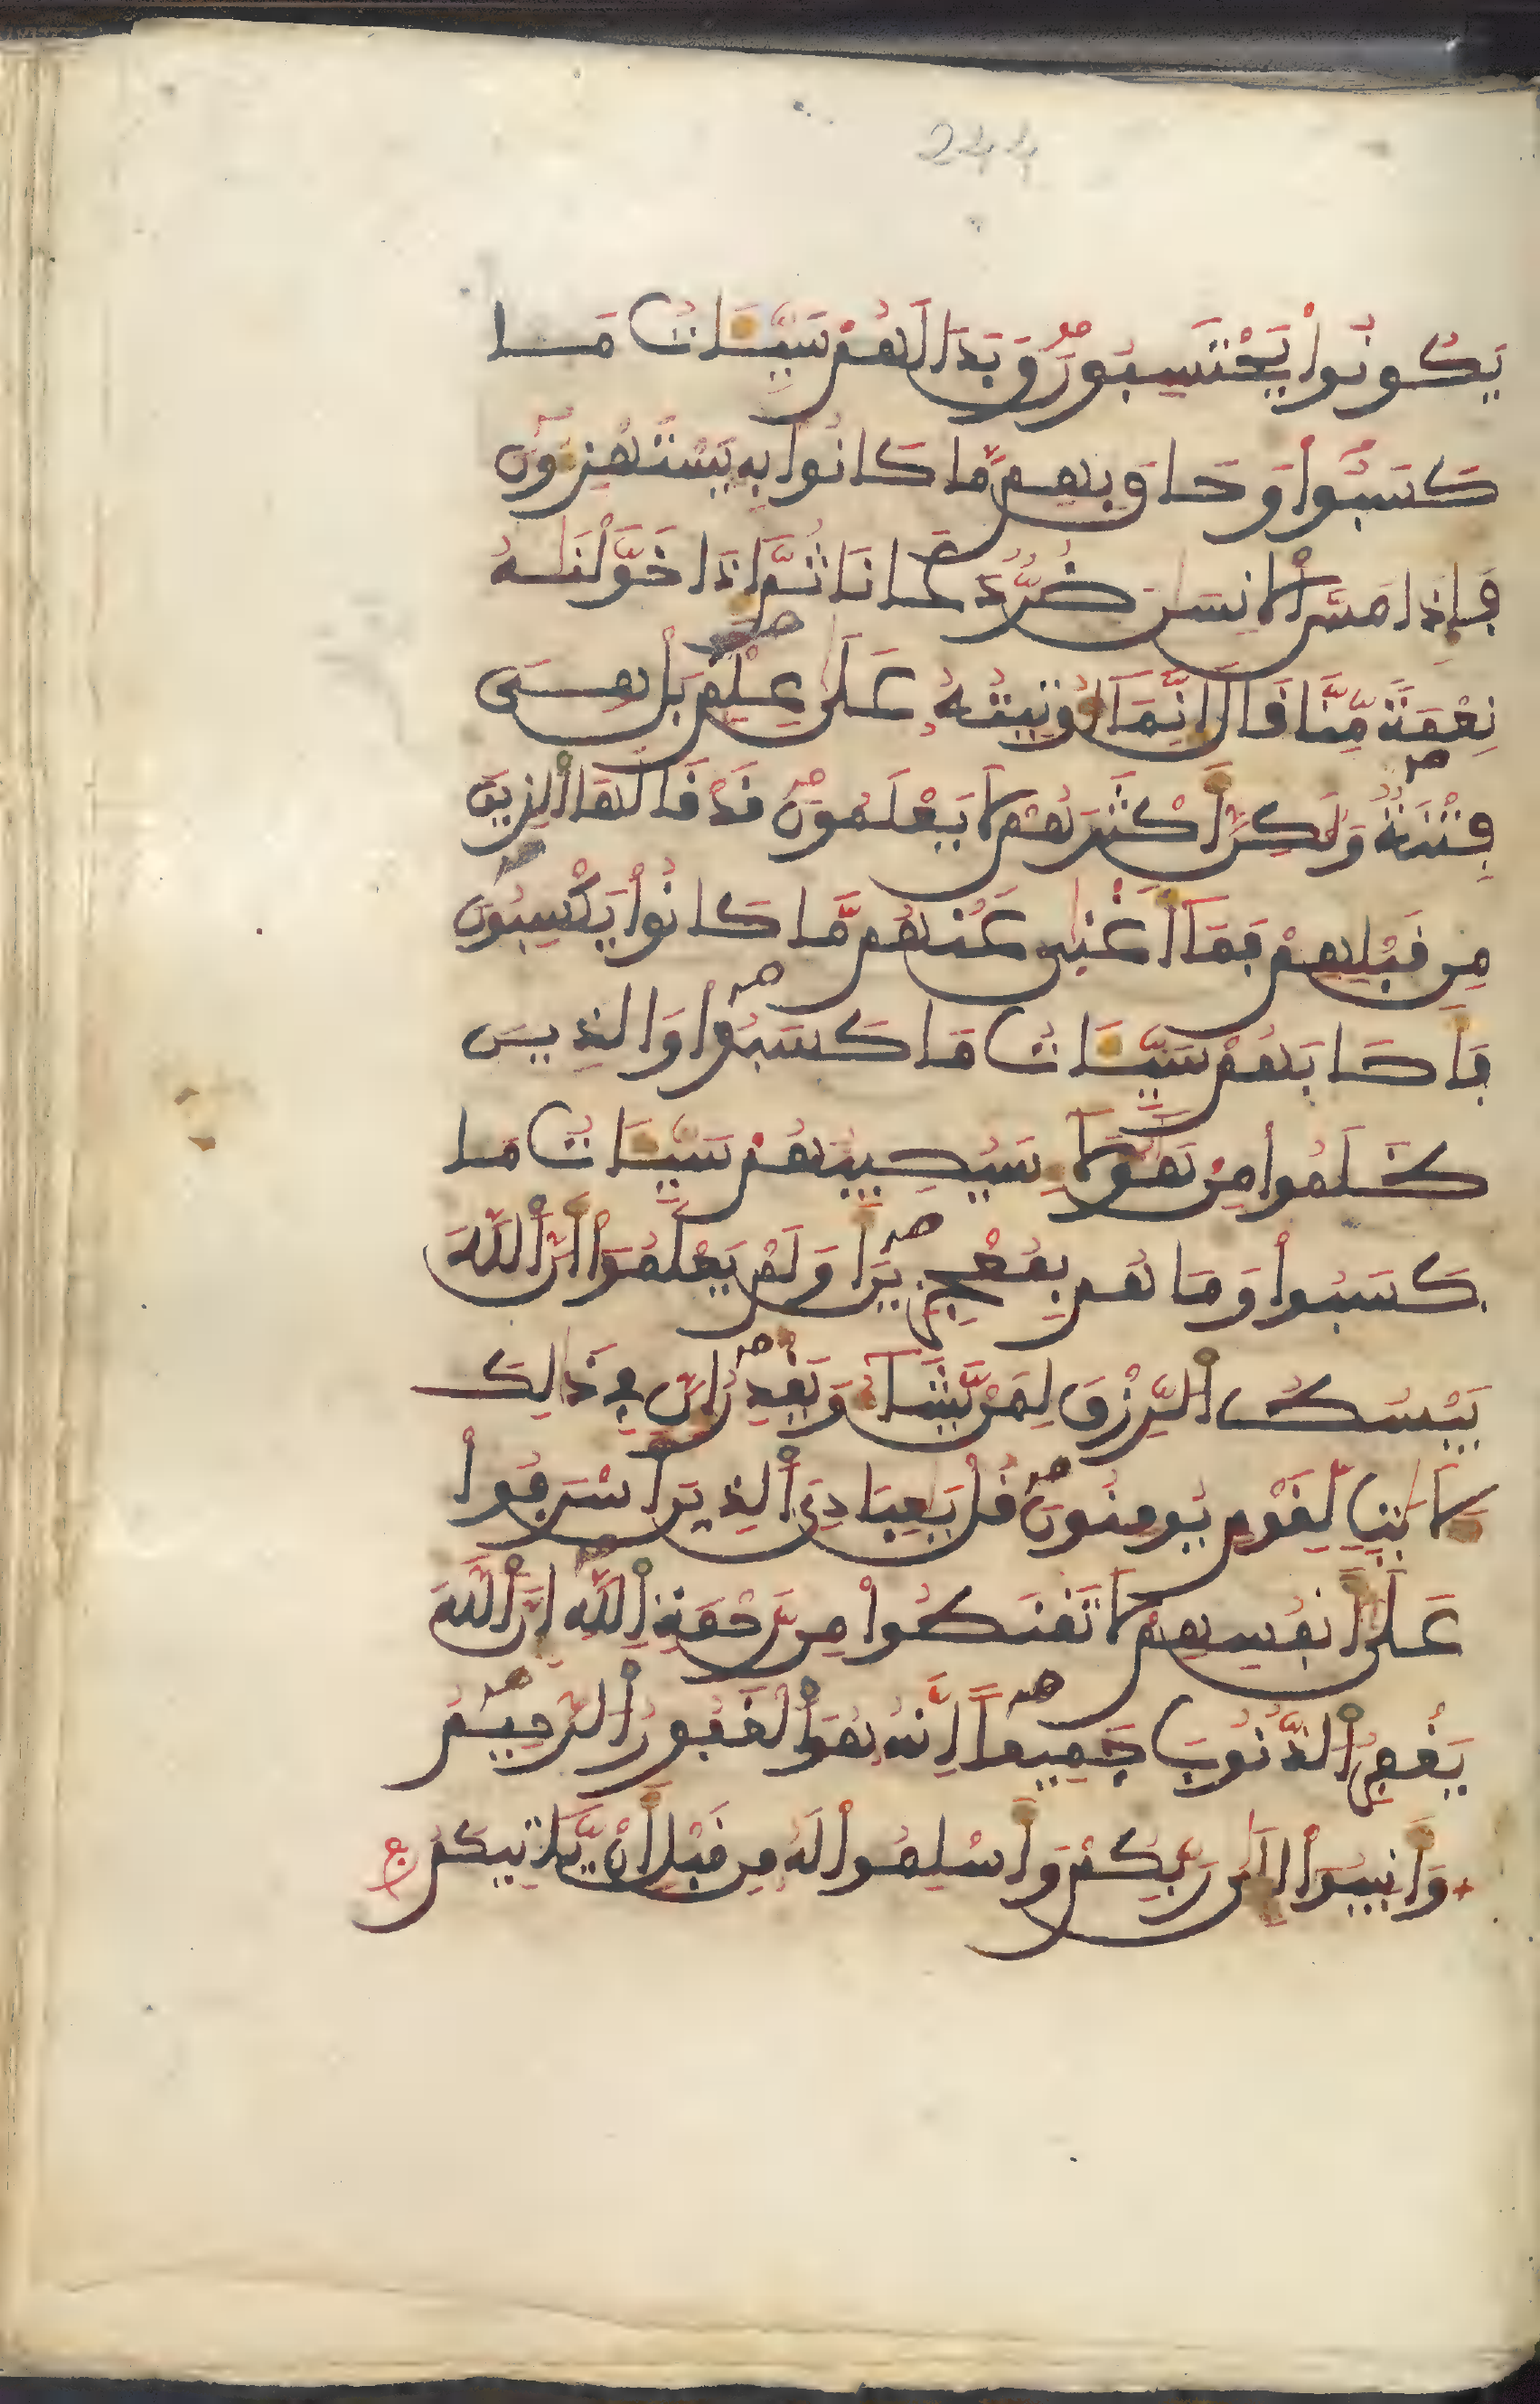 244
يَكُونُواْ يَحْتَسِبُونَ وَبَدَا لَهُمْ سَيِّـَٔاتُ مَا
كَسَبُواْ وَحَاقَ بِهِم مَّا كَانُواْ بِهِ يَسْتَهْزِءُونَ
فَإِذَا مَسَّ ٱلِانسَٰنَ ضُرٌّ دَعَانَا ثُمَّ إِذَا خَوَّلْنَٰهُ
نِعْمَةً مِّنَّا قَالَ إِنَّمَا أُوتِيتُهُ عَلَىٰ عِلْمٍ بَلْ هِىَ
فِتْنَةٌ وَلَٰكِنَّ أَكْثَرَهُمْ لَا يَعْلَمُونَ قَدْ قَالَهَا ٱلذِينَ
مِن قَبْلِهِمْ فَمَا أَغْنَىٰ عَنْهُم مَّا كَانُواْ يَكْسِبُونَ
فَأَصَابَهُمْ سَيِّـَٔاتُ مَا كَسَبُواْ وَالذِينَ
ظَلَمُواْ مِنْ هَٰٓؤُلَآءِ سَيُصِيبُهُمْ سَيِّـَٔاتُ مَا
كَسَبُواْ وَمَا هُم بِمُعْجِزِينَ أَوَلَمْ يَعْلَمُواْ أَنَّ ٱللَّهَ
يَبْسُطُ ٱلرِّزْقَ لِمَنْ يَّشَآءُ وَيَقْدِرُ إِنَّ فِى ذَٰلِكَ
لَأٓيَٰتٍ لِّقَوْمٍ يُومِنُونَ قُلْ يَٰعِبَادِىَ ٱلذِينَ أَسْرَفُواْ
عَلَىٰ أَنفُسِهِمْ لَا تَقْنَطُواْ مِن رَّحْمَةِ ٱللَّهِ إِنَّ ٱللَّهَ
يَغْفِرُ ٱلذُّنُوبَ جَمِيعاً إِنَّهُ هُوَ ٱلْغَفُورُ ٱلرَّحِيمُ
وَأَنِيبُواْ إِلَىٰ رَبِّكُمْ وَأَسْلِمُواْ لَهُ مِن قَبْلِ أَنْ يَّاتِيَكُمُ ع